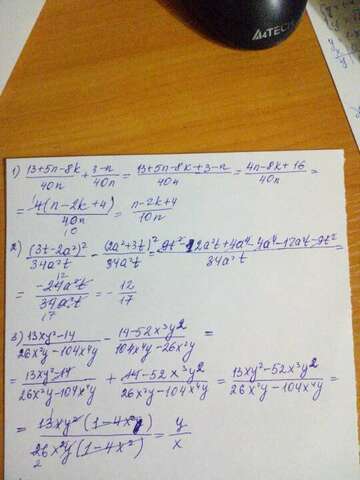 A4TECH
1) (13+5n-8k)/40n + (3-n)/40n = (13+5n-8k+3-n)/40n = (4n-8k+16)/40n =
= 4(n-2k+4)/40n 10 = (n-2k+4)/10n
2) (3t-2a²)²/34a²t - (2a²+3t)²/34a²t = (9t²-12a²t+4a⁴-4a⁴-12a²t-9t²)/34a²t =
= -24a²t 12/34a²t 17 = -12/17
3) (13xy²-14)/(26x²y-104x⁴y) - (14-52x³y²)/(104x⁴y-26x²y) =
= (13xy²-14)/(26x²y-104x⁴y) + (14-52x³y²)/(26x²y-104x⁴y) = (13xy²-52x³y²)/(26x²y-104x⁴y) =
= 13xy²(1-4x²)/26x²y(1-4x²) 2 = y/x